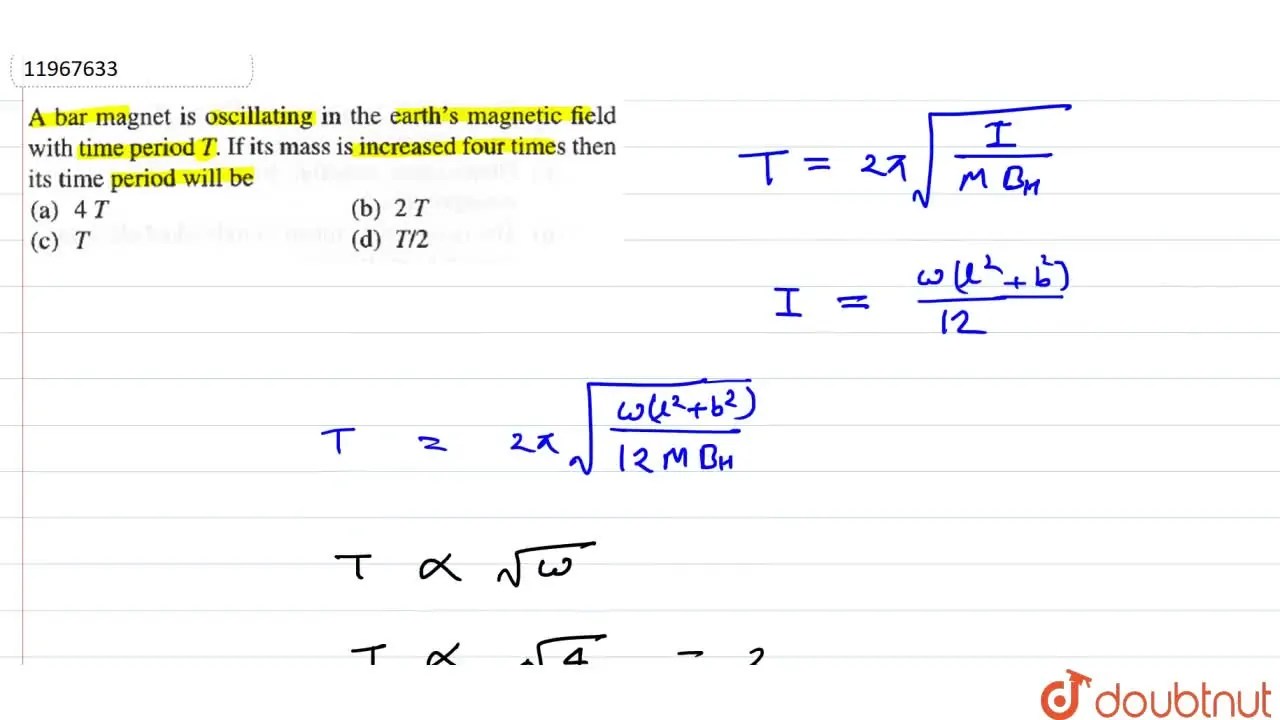 11967633
A bar magnet is oscillating in the earth's magnetic field
with time period T. If its mass is increased four times then
its time period will be
(a) 4 T (b) 2 T
(c) T (d) T/2
T = 2π√(I / M B_H)
I = ω(l² + b²) / 12
T = 2π√(ω(l²+b²) / 12 M B_H)
T ∝ √ω
T ∝ √4 = 2
doubtnut